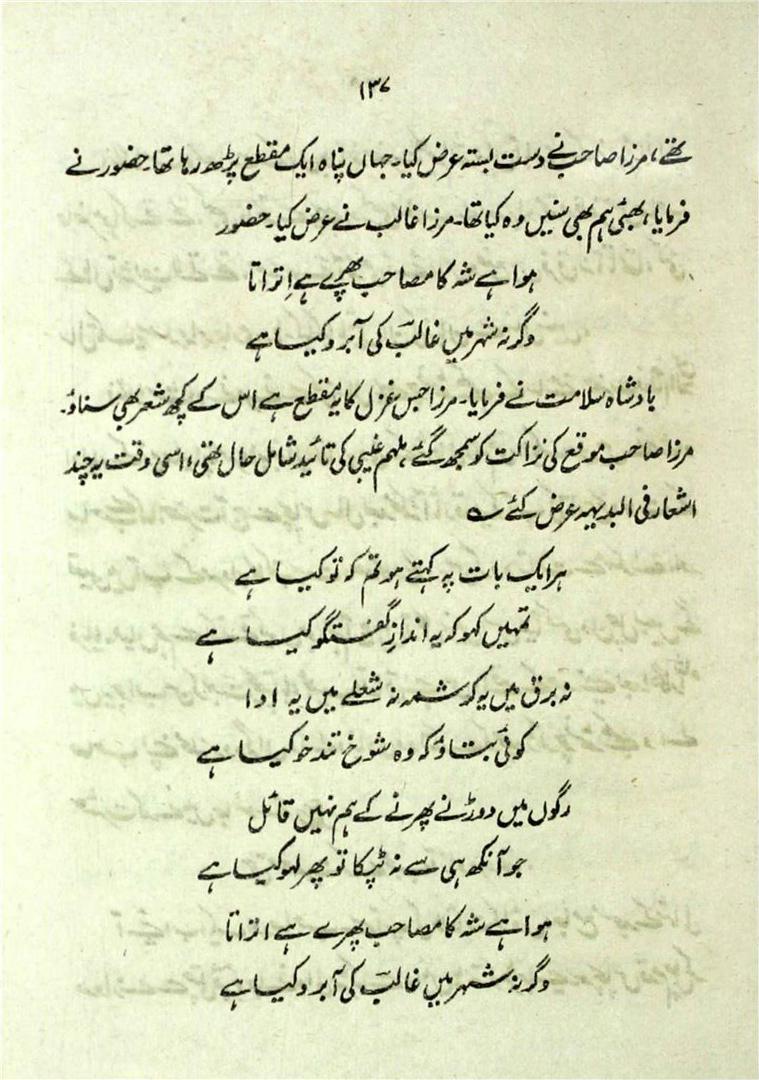 ۱۳۷
تھے، مرزا صاحب نے دست بستہ عرض کیا۔ جہاں پناہ ایک مقطع پڑھ رہا تھا۔ حضور نے
فرمایا، بھئی ہم بھی سنیں وہ کیا تھا۔ مرزا غالب نے عرض کیا۔ حضور
ہوا ہے شہ کا مصاحب پھرے ہے اِتراتا
وگرنہ شہر میں غالبؔ کی آبرو کیا ہے
بادشاہ سلامت نے فرمایا۔ مرزا جس غزل کا یہ مقطع ہے اس کے کچھ شعر بھی سناؤ۔
مرزا صاحب موقع کی نزاکت کو سمجھ گئے، ملہم غیبی کی تائید شامل حال تھی، اسی وقت یہ چند
اشعار فی البدیہہ عرض کئے ؎
ہر ایک بات پہ کہتے ہو تم کہ تو کیا ہے
تمہیں کہو کہ یہ اندازِ گفتگو کیا ہے
نہ برق میں یہ کرشمہ نہ شعلے میں یہ ادا
کوئی بتاؤ کہ وہ شوخ تند خو کیا ہے
رگوں میں دوڑنے پھرنے کے ہم نہیں قائل
جو آنکھ ہی سے نہ ٹپکا تو پھر لہو کیا ہے
ہوا ہے شہ کا مصاحب پھرے ہے اتراتا
وگرنہ شہر میں غالبؔ کی آبرو کیا ہے